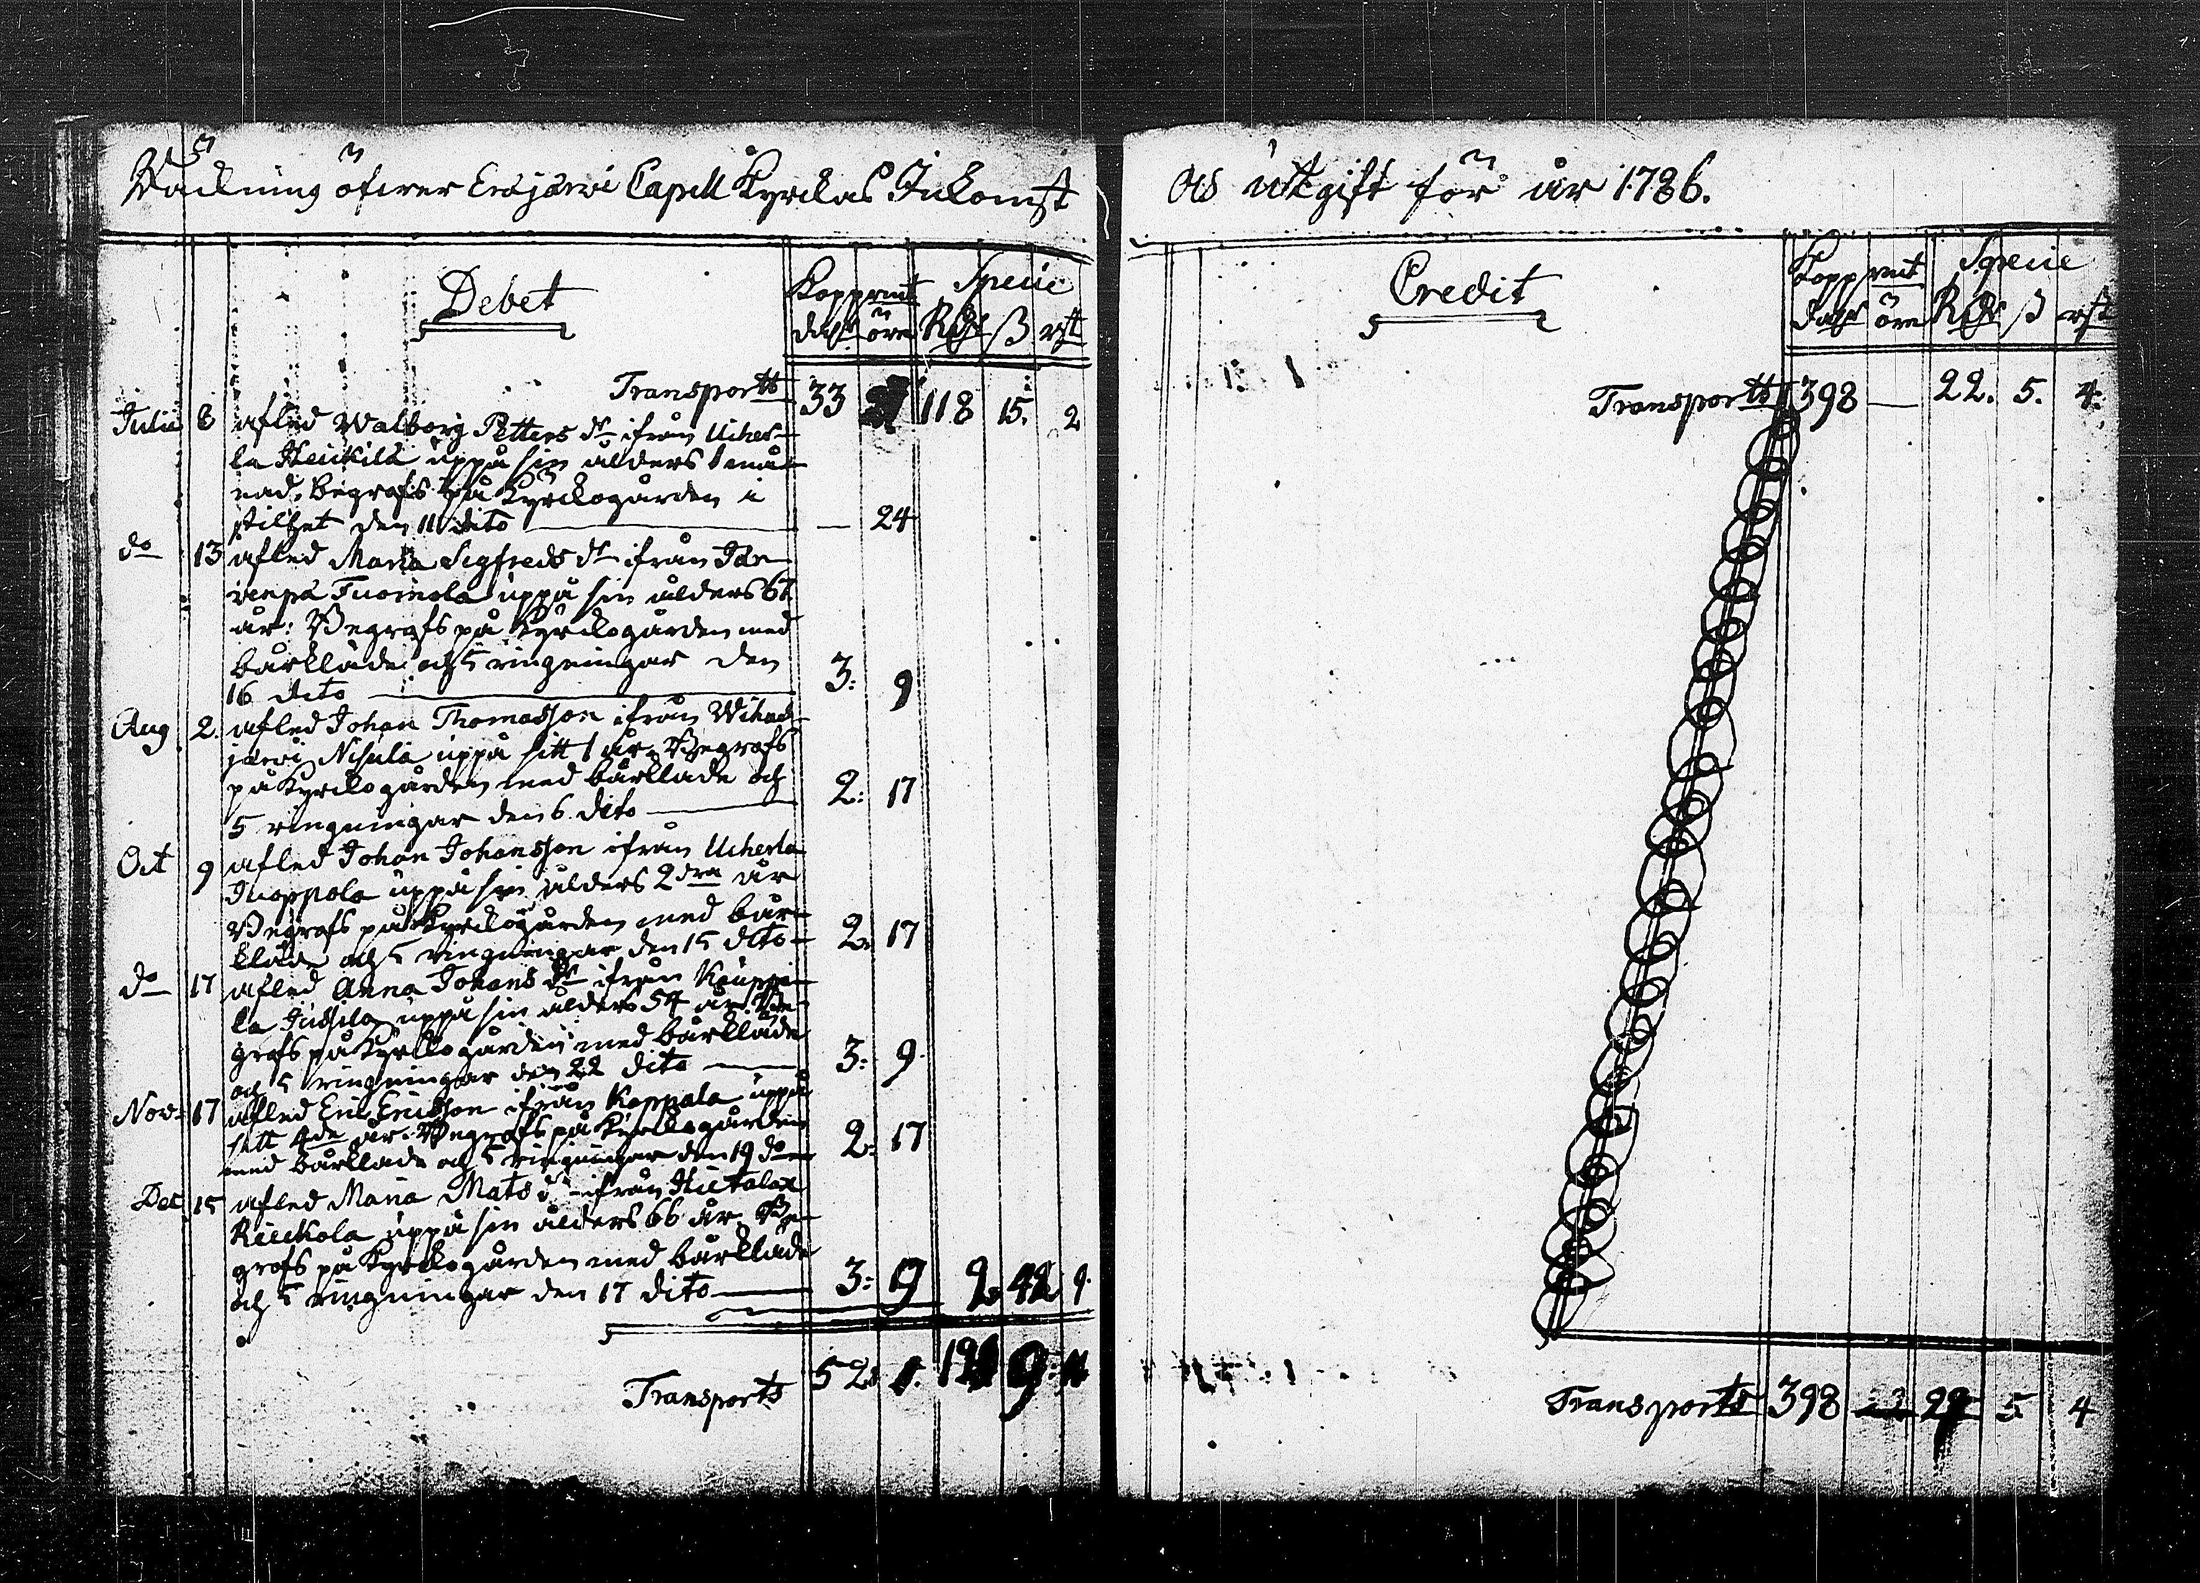 Räckning öfwer Erajärwi Capell Kyrckas Inkomst
Debet
Kopprmt Specie
dalr öre Rdlr ß rst
Transportt 33 118 15. 2
Julii 8 afled Walborg Petters dr ifrån Uiher-
la Heickilä uppå sin ålders 1 må-
nad. Begrofs på Kyrckogården i
stilhet den 11 dito — 24
do 13 afled Maria Sigfreds dr ifrån Jär-
wenpä Tuomola uppå sin ålders 61
år: Begrofs på Kyrckogården med
bårkläde och 5 ringningar den
16 dito 3: 9
Aug 2. afled Johan Thomasson ifrån Wihas-
järwi Nisula uppå sitt 1 år. Begrofs
på Kyrckogården med bårkläde och
5 ringningar den 6 dito 2: 17
Oct 9 afled Johan Johansson ifrån Uiherla
Juoppola uppå sin ålders 2dra år
Begrofs på Kyrckogården med bår-
kläde och 5 ringningar den 15 dito 2: 17
do 17 afled Anna Johans dr ifrån Kauppi-
la Jussila uppå sin ålders 54 år. Be-
grofs på Kyrckogården med bårkläde
och 5 ringningar den 22 dito 3: 9.
Nov: 17 afled Eric Ericsson ifrån Koppala uppå
sitt 4de år. Begrofs på Kyrckogården
med bårkläde och 5 ringningar den 19 do 2: 17
Dec 15 afled Maria Mats dr ifrån Hietalax
Reickola uppå sin ålders 66 år. Be-
grofs på Kyrckogården med bårkläde
och 5 ringningar den 17 dito 3: 9
Transports 52. 9
och utgift för år 1786.
Credit
Kopprmt Specie
dalr öre Rdlr ß rst
Transportt 398 — 22. 5. 4.
Transports 398 5. 4